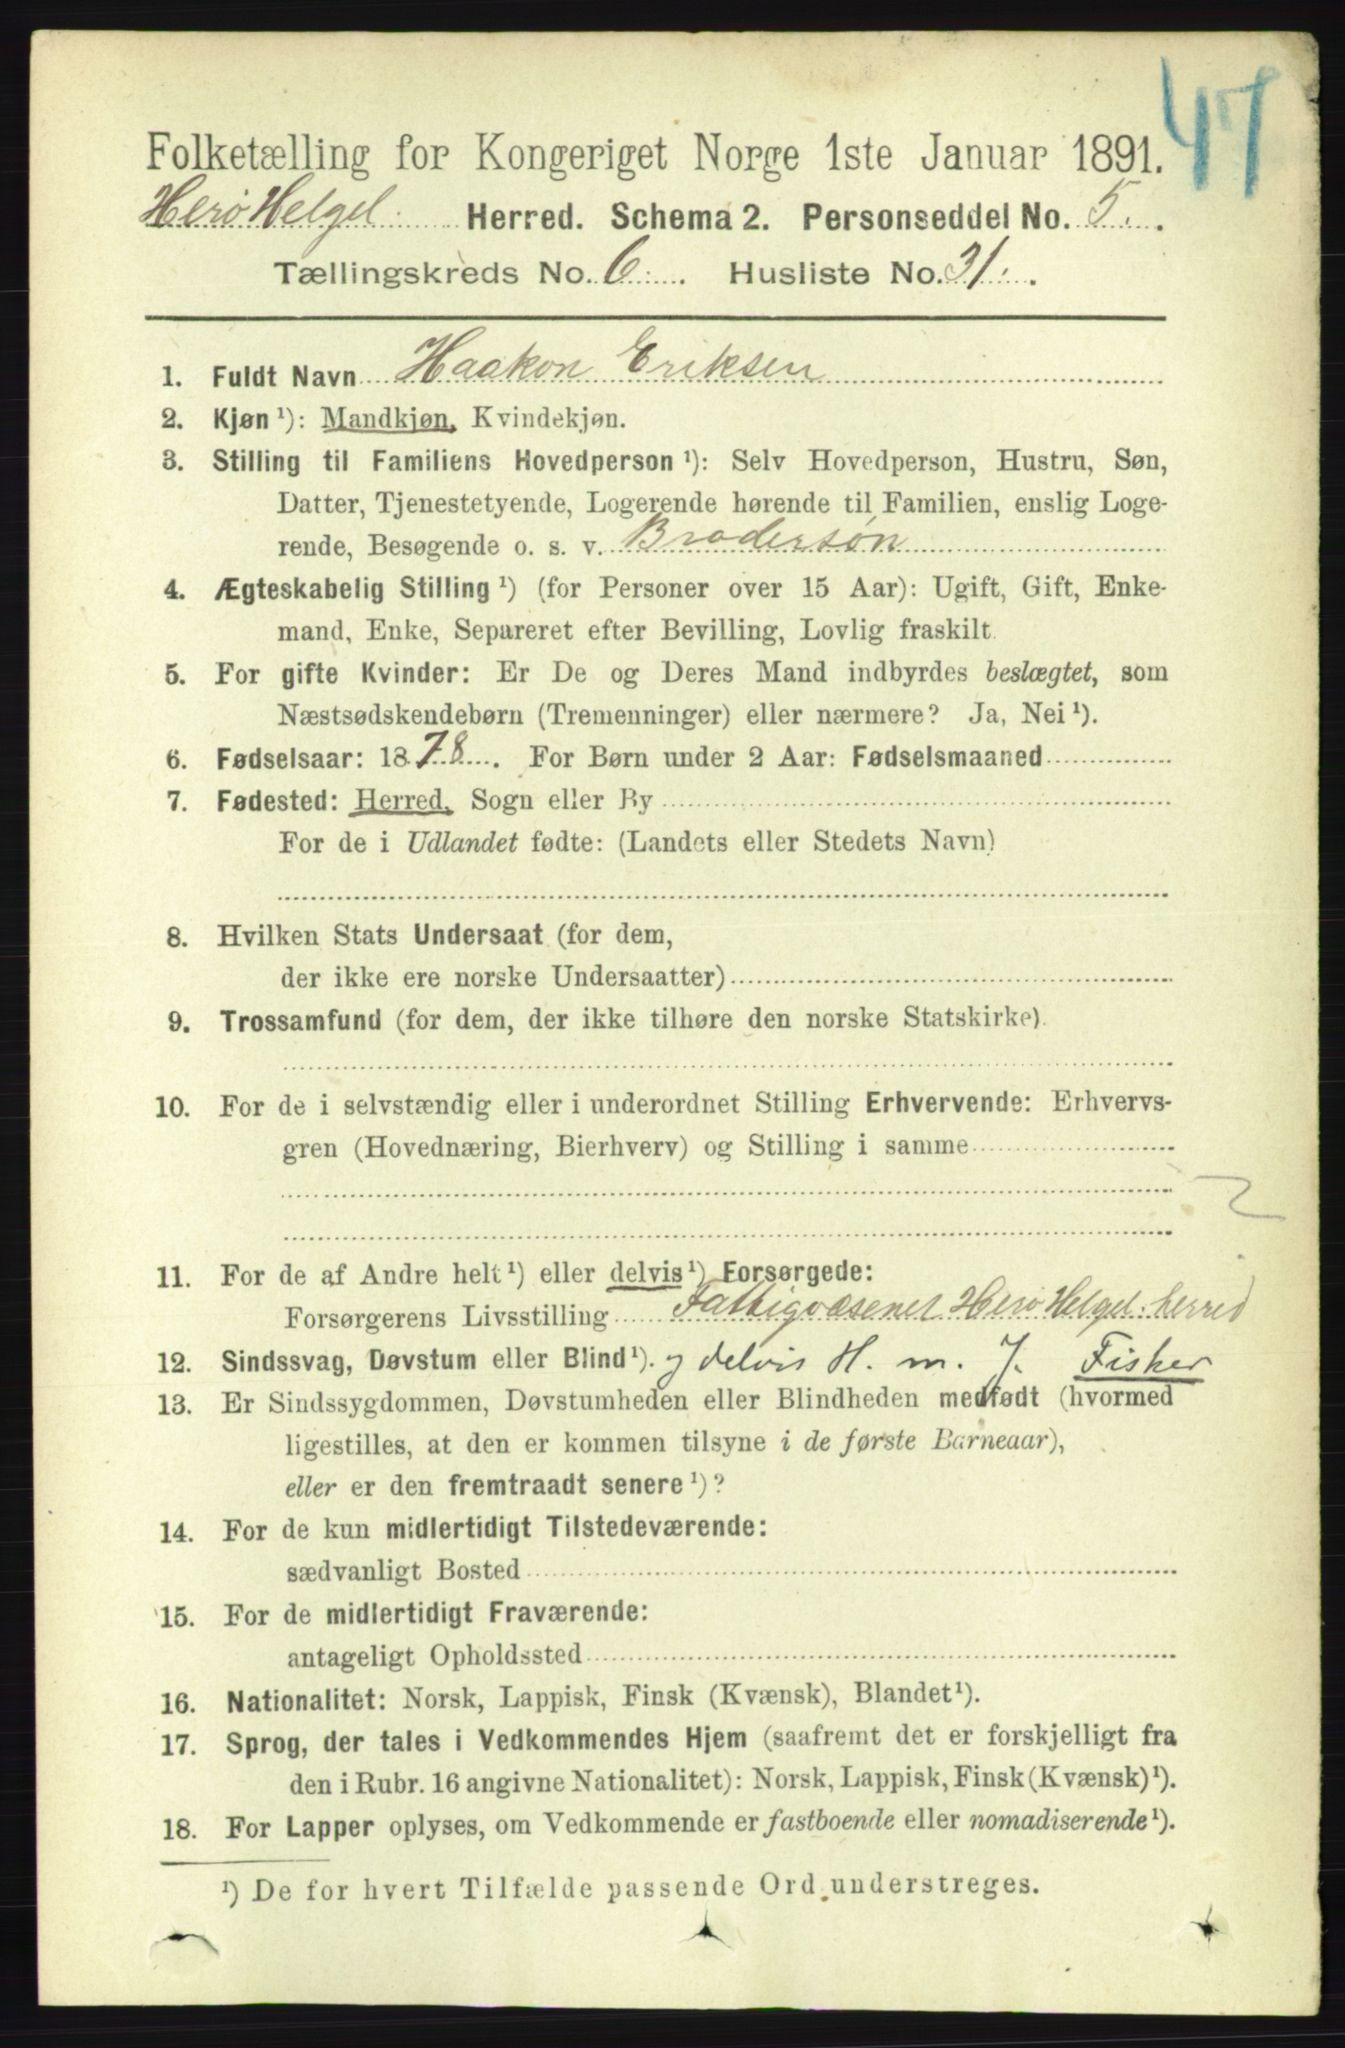 47
Folketælling for Kongeriget Norge 1ste Januar 1891.
Herø Helgel. Herred. Schema 2. Personseddel No. 5.
Tællingskreds No. 6. Husliste No. 31.
1. Fuldt Navn Haakon Eriksen
2. Kjøn ¹): Mandkjøn, Kvindekjøn.
3. Stilling til Familiens Hovedperson ¹): Selv Hovedperson, Hustru, Søn,
Datter, Tjenestetyende, Logerende hørende til Familien, enslig Loge-
rende, Besøgende o. s. v. Brodersøn
4. Ægteskabelig Stilling ¹) (for Personer over 15 Aar): Ugift, Gift, Enke-
mand, Enke, Separeret efter Bevilling, Lovlig fraskilt.
5. For gifte Kvinder: Er De og Deres Mand indbyrdes beslægtet, som
Næstsødskendebørn (Tremenninger) eller nærmere? Ja, Nei ¹).
6. Fødselsaar: 1878. For Børn under 2 Aar: Fødselsmaaned
7. Fødested: Herred, Sogn eller By
For de i Udlandet fødte: (Landets eller Stedets Navn)
8. Hvilken Stats Undersaat (for dem,
der ikke ere norske Undersaatter)
9. Trossamfund (for dem, der ikke tilhøre den norske Statskirke)
10. For de i selvstændig eller i underordnet Stilling Erhvervende: Erhvervs-
gren (Hovednæring, Bierhverv) og Stilling i samme
2
11. For de af Andre helt ¹) eller delvis ¹) Forsørgede:
Forsørgerens Livsstilling Fattigvæsenet Herø Helgel. herred
12. Sindssvag, Døvstum eller Blind ¹). og delvis H. m. J. Fisker
13. Er Sindssygdommen, Døvstumheden eller Blindheden medfødt (hvormed
ligestilles, at den er kommen tilsyne i de første Barneaar),
eller er den fremtraadt senere ¹)?
14. For de kun midlertidigt Tilstedeværende:
sædvanligt Bosted
15. For de midlertidigt Fraværende:
antageligt Opholdssted
16. Nationalitet: Norsk, Lappisk, Finsk (Kvænsk), Blandet ¹).
17. Sprog, der tales i Vedkommendes Hjem (saafremt det er forskjelligt fra
den i Rubr. 16 angivne Nationalitet): Norsk, Lappisk, Finsk (Kvænsk) ¹).
18. For Lapper oplyses, om Vedkommende er fastboende eller nomadiserende ¹).
¹) De for hvert Tilfælde passende Ord understreges.